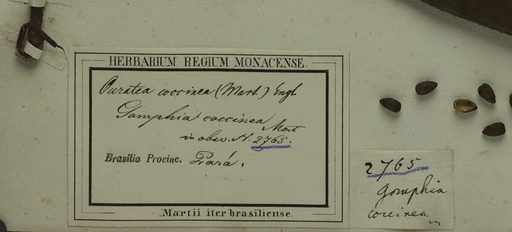 HERBARIUM REGIUM MONACENSE.
Ouratea coccinea (Mart.) Engl
Gomphia coccinea Mart
in obsv. N. 2765.
Brasilia Provinc. Pará.
Martii iter brasiliense.
2765
Gomphia
coccinea